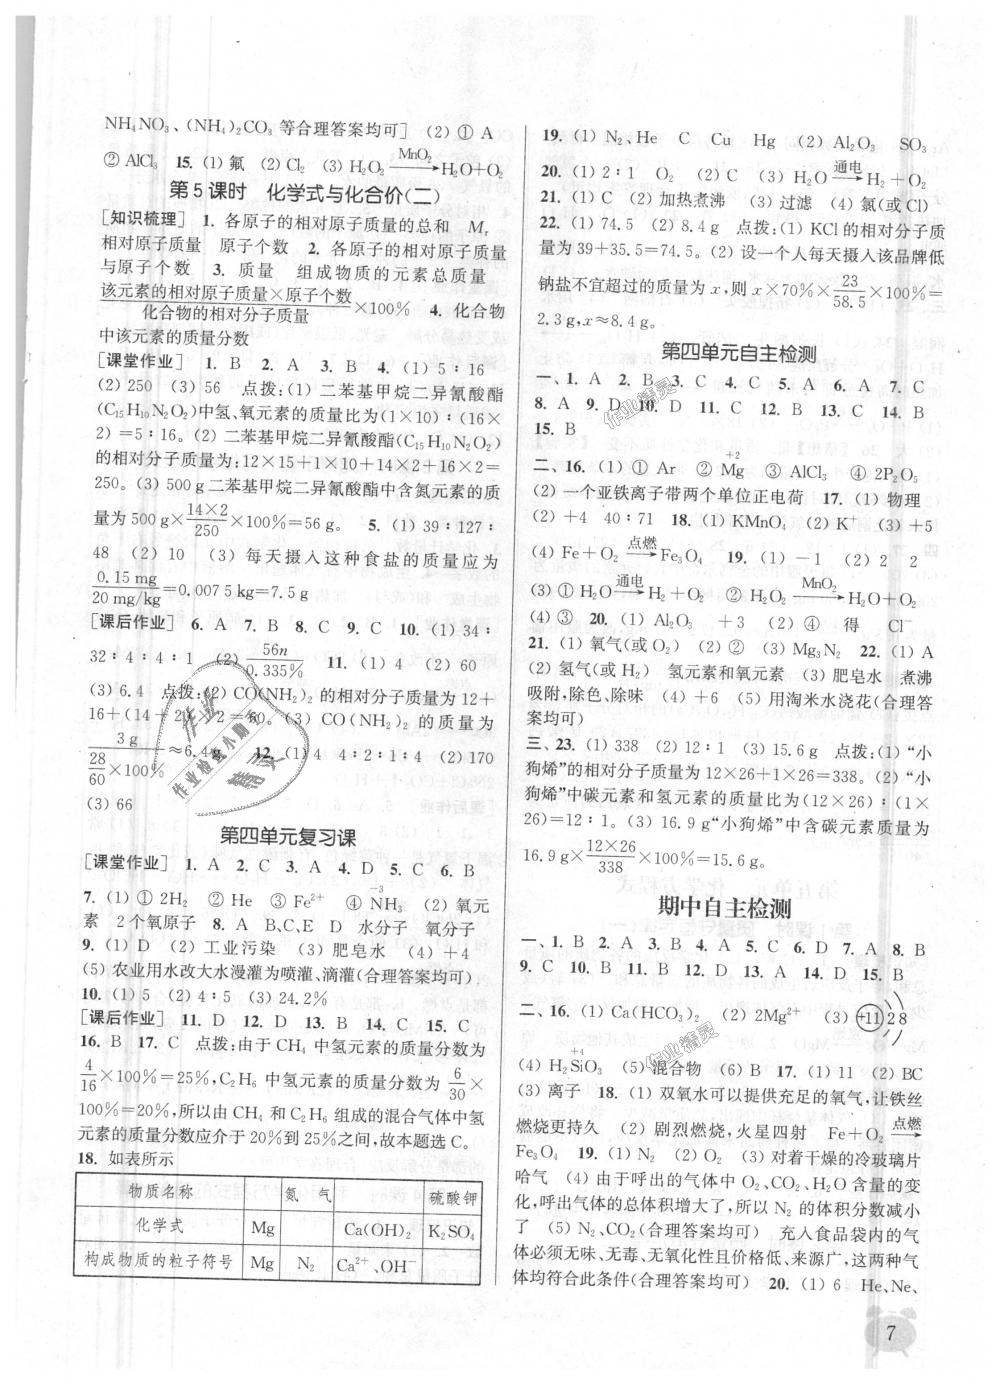 NH₄NO₃、(NH₄)₂CO₃ 等合理答案均可] (2) ① A
② AlCl₃ 15. (1) 氟 (2) Cl₂ (3) H₂O₂ —MnO₂→ H₂O+O₂
第5课时 化学式与化合价(二)
[知识梳理] 1. 各原子的相对原子质量的总和 Mᵣ
相对原子质量 原子个数 2. 各原子的相对原子质量
与原子个数 3. 质量 组成物质的元素总质量
该元素的相对原子质量×原子个数/化合物的相对分子质量 ×100% 4. 化合物
中该元素的质量分数
[课堂作业] 1. B 2. A 3. B 4. (1) 5∶16
(2) 250 (3) 56 点拨：(1) 二苯基甲烷二异氰酸酯
(C₁₅H₁₀N₂O₂)中氢、氧元素的质量比为(1×10)∶(16×
2)=5∶16。(2) 二苯基甲烷二异氰酸酯(C₁₅H₁₀N₂O₂)
的相对分子质量为：12×15+1×10+14×2+16×2=
250。(3) 500 g 二苯基甲烷二异氰酸酯中含氮元素的质
量为 500 g×14×2/250×100%=56 g。 5. (1) 39∶127∶
48 (2) 10 (3) 每天摄入这种食盐的质量应为
0.15 mg/20 mg/kg=0.0075 kg=7.5 g
[课后作业] 6. A 7. B 8. C 9. C 10. (1) 34∶
32∶4∶4∶1 (2) 56n/0.335% 11. (1) 4 (2) 60
(3) 6.4 点拨：(2) CO(NH₂)₂ 的相对分子质量为 12+
16+(14+2)×2=60。(3) CO(NH₂)₂ 的质量为
3 g/(28/60×100%)≈6.4 g 12. (1) 4 4∶2∶1∶4 (2) 170
(3) 66
第四单元复习课
[课堂作业] 1. A 2. C 3. A 4. D 5. C 6. B
7. (1) ① 2H₂ ② He ③ Fe²⁺ ④ N⁻³H₃ (2) 氧元
素 2个氧原子 8. A、B、C、E D 水分子 氧分子
9. (1) D (2) 工业污染 (3) 肥皂水 (4) +4
(5) 农业用水改大水漫灌为喷灌、滴灌(合理答案均可)
10. (1) 5 (2) 4∶5 (3) 24.2%
[课后作业] 11. D 12. D 13. B 14. C 15. C
16. B 17. C 点拨：由于 CH₄ 中氢元素的质量分数为
4/16×100%=25%，C₂H₆ 中氢元素的质量分数为 6/30×
100%=20%，所以由 CH₄ 和 C₂H₆ 组成的混合气体中氢
元素的质量分数应介于 20%到 25%之间，故本题选 C。
18. 如表所示
物质名称 氮气 硫酸钾
化学式 Mg Ca(OH)₂ K₂SO₄
构成物质的粒子符号 Mg N₂ Ca²⁺、OH⁻
19. (1) N₂、He C Cu Hg (2) Al₂O₃ SO₃
20. (1) 2∶1 O₂ (2) C (3) H₂O —通电→ H₂+O₂
21. (1) C (2) 加热煮沸 (3) 过滤 (4) 氯(或 Cl)
22. (1) 74.5 (2) 8.4 g 点拨：(1) KCl 的相对分子质
量为 39+35.5=74.5。(2) 设一个人每天摄入该品牌低
钠盐不宜超过的质量为 x，则 x×70%×23/58.5×100%=
2.3 g，x≈8.4 g。
第四单元自主检测
一、1. A 2. B 3. C 4. C 5. A 6. A 7. C
8. A 9. D 10. D 11. C 12. B 13. C 14. B
15. B
二、16. (1) ① Ar ② Mg⁺² ③ AlCl₃ ④ 2P₂O₅
(2) 一个亚铁离子带两个单位正电荷 17. (1) 物理
(2) +4 40∶71 18. (1) KMnO₄ (2) K⁺ (3) +5
(4) Fe+O₂ —点燃→ Fe₃O₄ 19. (1) −1 (2) 2 2
(3) ① H₂O —通电→ H₂+O₂ ② H₂O₂ —MnO₂→ H₂O+O₂
(4) ③ 20. (1) Al₂O₃ +3 (2) ④ 得 Cl⁻
21. (1) 氧气(或 O₂) (2) ② (3) Mg₃N₂ 22. (1) A
(2) 氢气(或 H₂) 氢元素和氧元素 (3) 肥皂水 煮沸
吸附、除色、除味 (4) +6 (5) 用淘米水浇花(合理答
案均可)
三、23. (1) 338 (2) 12∶1 (3) 15.6 g 点拨：(1) “小
狗烯”的相对分子质量为 12×26+1×26=338。(2) “小
狗烯”中碳元素和氢元素的质量比为(12×26)∶(1×
26)=12∶1。(3) 16.9 g“小狗烯”中含碳元素质量为
16.9 g×12×26/338×100%=15.6 g。
期中自主检测
一、1. B 2. A 3. B 4. A 5. C 6. D 7. A 8. B
9. C 10. B 11. B 12. D 13. A 14. D 15. B
二、16. (1) Ca(HCO₃)₂ (2) 2Mg²⁺ (3) +11 2 8
(4) H₂Si⁺⁴O₃ (5) 混合物 (6) B 17. (1) 11 (2) BC
(3) 离子 18. (1) 双氧水可以提供充足的氧气，让铁丝
燃烧更持久 (2) 剧烈燃烧，火星四射 Fe+O₂ —点燃→
Fe₃O₄ 19. (1) N₂ (2) O₂ (3) 对着干燥的冷玻璃片
哈气 (4) 由于呼出的气体中 O₂、CO₂、H₂O 含量的变
化，呼出气体的总体积增大了，所以 N₂ 的体积分数减小
了 (5) N₂、CO₂(合理答案均可) 充入食品袋内的气
体必须无味、无毒、无氧化性且价格低、来源广，这两种气
体均符合此条件(合理答案均可) 20. (1) 6 He、Ne、
7
作业精灵
作业精灵
作业检查小助手